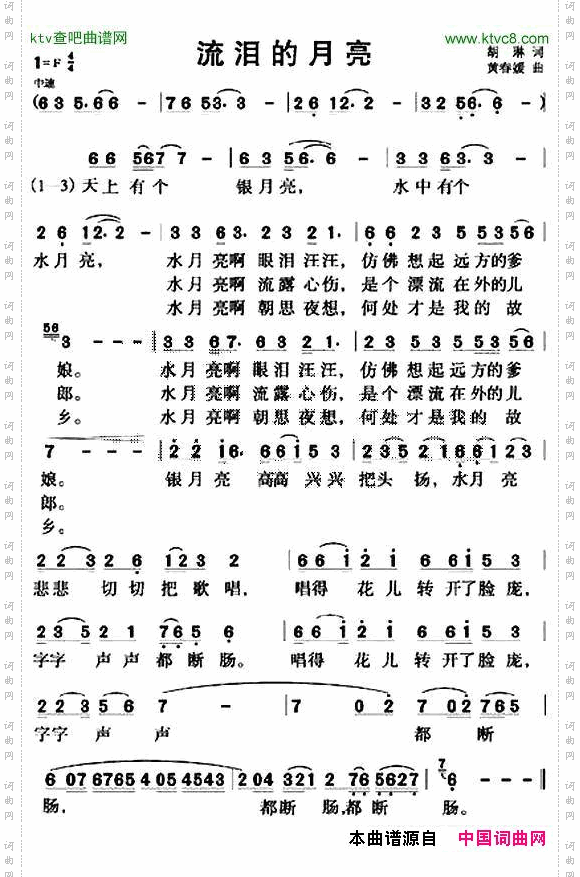 ktv查吧曲谱网
www.ktvc8.com
流泪的月亮
1=F 4/4
胡琳 词
中速
黄春媛 曲
(6 3 5·6 6 - | 7 6 5 3·3 - | 2 6 1 2·2 - | 3 2 5 6·6 - )
6 6 5 6 7 7 - | 6 3 5 6·6 - | 3 3 6 3·3 - |
(1—3)天上有个 银月亮, 水中有个
2 6 1 2·2 - | 3 3 6 3·2 3 2 1· | 6 6 2 3 5 5 3 5 5 6 |
水月亮, 水月亮啊眼泪汪汪, 仿佛想起远方的爹
水月亮啊流露心伤, 是个漂流在外的儿
水月亮啊朝思夜想, 何处才是我的故
56
3 - - - | 3 3 6 7· 6 3 2 2 1· | 6 6 2 3 5 5 3 5 5 6 |
娘。 水月亮啊眼泪汪汪, 仿佛想起远方的爹
郎。 水月亮啊流露心伤, 是个漂流在外的儿
乡。 水月亮啊朝思夜想, 何处才是我的故
7 - - - | 2 2 1 6· 6 6 1 6 6 3 | 2 3 5 2 1 6 6 1 2 3 |
娘。 银月亮 高高兴兴把头扬,水月亮
郎。
乡。
2 2 3 2 6 1 2 3 2 | 6 6 1 2 1 6 6 1 5 3 |
悲悲切切把歌唱, 唱得花儿转开了脸庞,
2 3 5 2 2 5 7 6 5 6 | 6 6 1 2 1 6 6 1 5 3 |
字字声声都断肠。 唱得花儿转开了脸庞,
2 2 3 5 7 - | 7 - 0 2 | 7 0 2 7 6 5 |
字字声声 都断
6 07 6765 4 05 4543 | 2 04 3 2 1 2 76 5627 | 7 6 - - - |
肠, 都断肠,都断肠。
本曲谱源自 中国词曲网
词曲网
词曲网
词曲网
词曲网
词曲网
词曲网
词曲网
词曲网